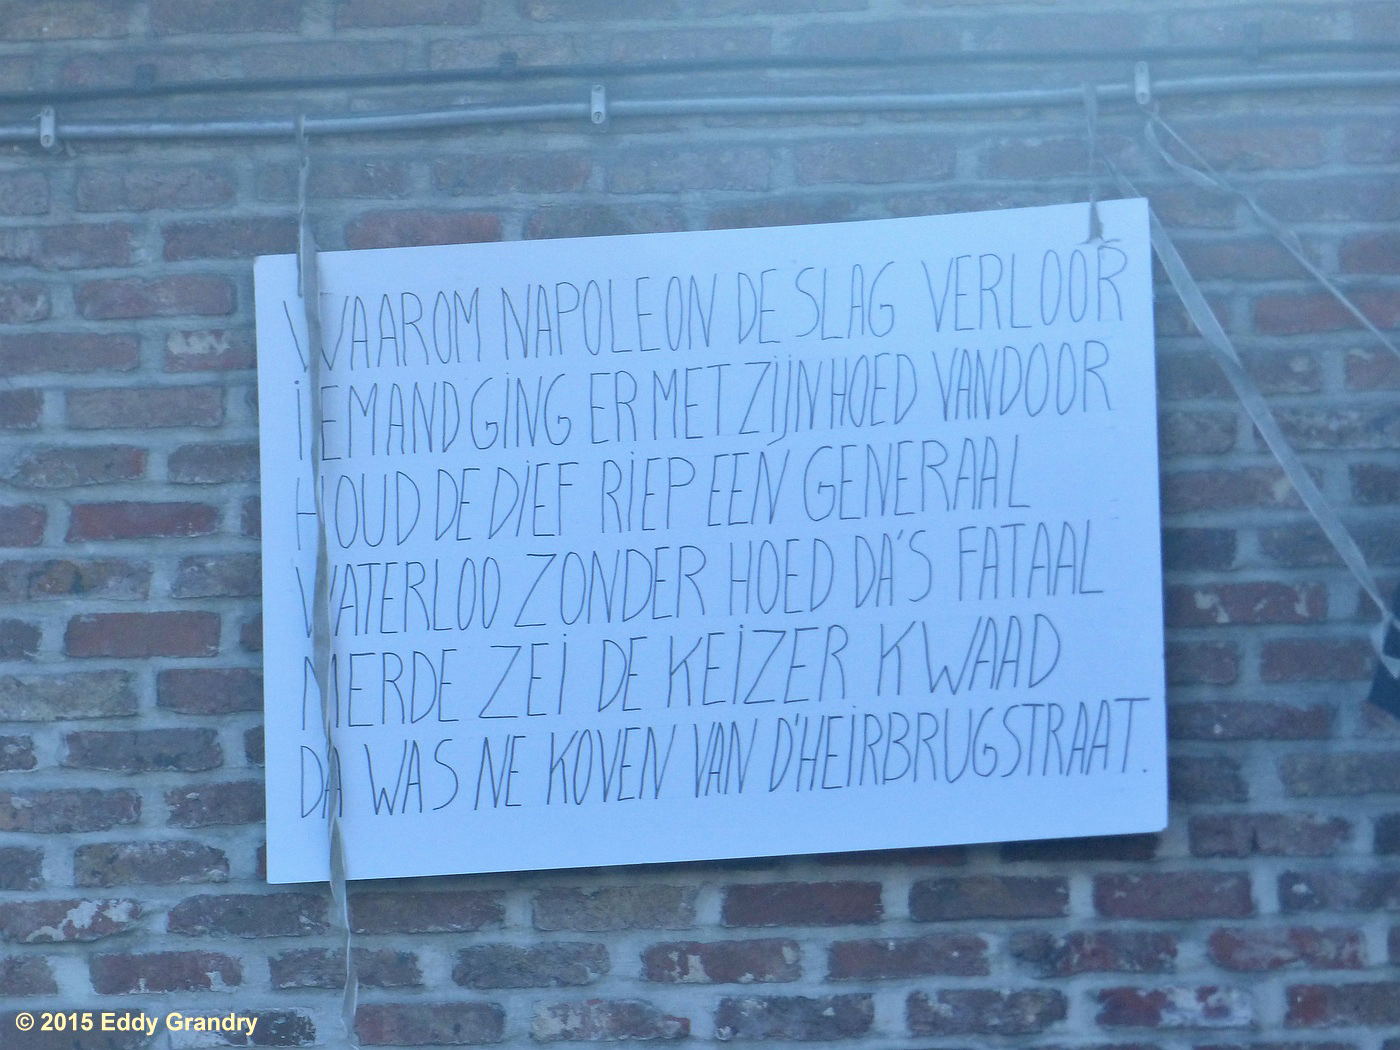 WAAROM NAPOLEON DE SLAG VERLOOR
IEMAND GING ER MET ZIJN HOED VANDOOR
HOUD DE DIEF RIEP EEN GENERAAL
WATERLOO ZONDER HOED DA'S FATAAL
MERDE ZEI DE KEIZER KWAAD
DA WAS NE KOVEN VAN D'HEIRBRUGSTRAAT.
© 2015 Eddy Grandry